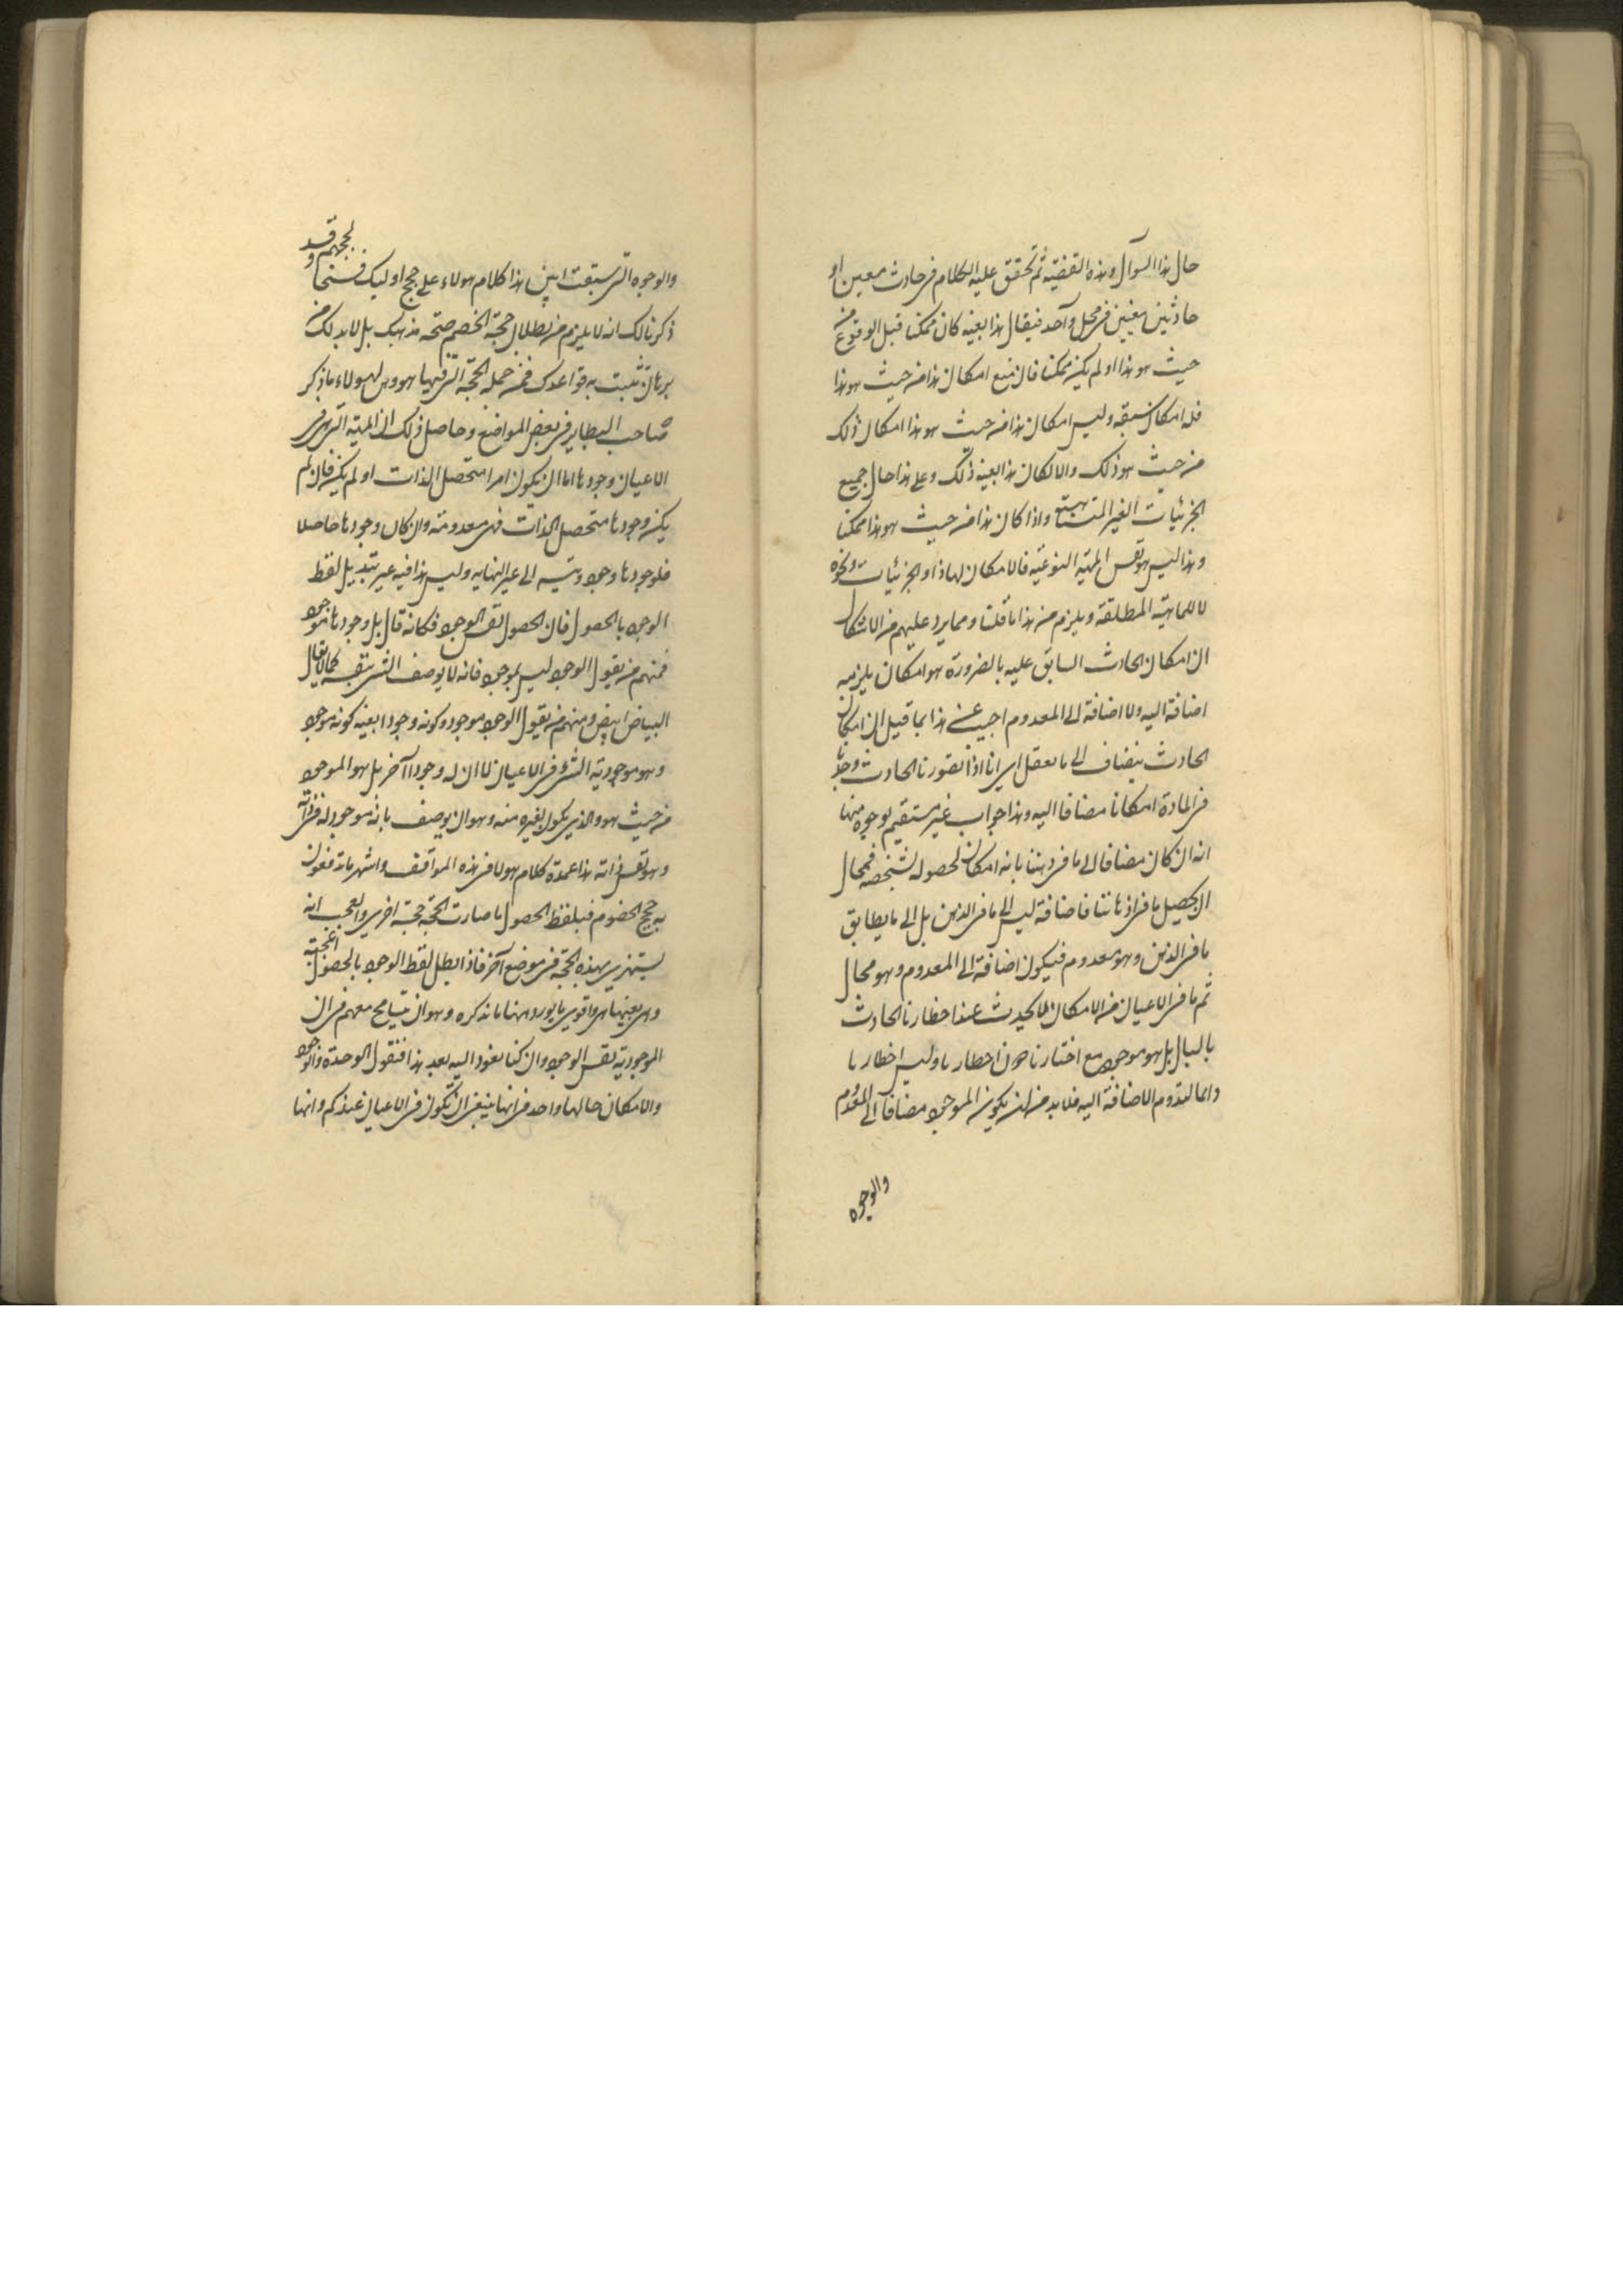 حال هذا السوآل وهذه القضية ثم تحقق عليه الكلام فى حادث معين او
حادثين معينين فى محل واحد فيقال هذا بعينه كان ممكنا قبل الوقوع من
حيث هو هذا او لم يكن ممكنا فان منع امكان هذا من حيث هو هذا
فله امكان سبقه وليس امكان هذا من حيث هو هذا امكان ذلك
من حيث هو ذلك والا لكان هذا بعينه ذلك وعلى هذا حال جميع
الجزئيات الغير المتناهية واذا كان هذا من حيث هو هذا ممكنا
وهذا ليس هو نفس المهية النوعية فالامكان لهاذا والجزئيات ونحوه
لا للماهية المطلقة ويلزم من هذا ما قلنا ومما يرد عليهم من الاشكال
ان امكان الحادث السابق عليه بالضرورة هو امكان يلزمه
اضافة اليه ولا اضافة الى المعدوم اجيب عن هذا بما قيل ان امكان
الحادث ينضاف الى ما يعقل اى انا اذا تصورنا الحادث وجدنا
فى المادة امكانا مضافا اليه وهذا جواب غير مستقيم بوجوه منها
انه ان كان مضافا الى ما فى ذهننا بانه امكان لحصوله بشخصه فمحال
ان يحصل ما فى اذهاننا فاضافة ليس الى ما فى الذهن بل الى ما يطابق
ما فى الذهن وهو معدوم فيكون اضافة الى المعدوم وهو محال
ثم ما فى الاعيان من الامكان لا يحدث عند اخطارنا الحادث
بالبال بل هو موجود مع اختيارنا دون اخطارنا وليس اخطارنا
دائما لتدوم الاضافة اليه فلا بد من ان يكون الموجود مضافا الى المعدوم
والوجوه
والوجوه التى سبقت ايض هذا كلام هولاء على حجج اوليك فى لحججهم وقد
ذكرنا لك انه لا يلزم من بطلان حجة الخصم صحة مذهبك بل لا بد لك من
برهان تثبت به قواعدك فمن جملة الحجة التى فيها هووس لهولاء ما ذكر
صاحب البصاير فى بعض المواضع وحاصل ذلك ان المهية التى هى فى
الاعيان وجودها اما ان يكون امرا متحصل الذات او لم يكن فان لم
يكن وجودها متحصل الذات فهى معدومة وان كان وجودها حاصلا
فلوجودها وجود ويتسلسل الى غير النهاية وليس هذا فيه غير تبديل لفظ
الوجود بالحصول فان الحصول نفس الوجود فكانه قال بل وجودها موجود
فمنهم من يقول الوجود ليس بموجود فانه لا يوصف الشى بنفسه كما لا يقال
البياض ابيض ومنهم من يقول الوجود موجود وكونه وجودا بعينه كونه موجودا
وهو موجودية الشىء فى الاعيان لا ان له وجودا آخر بل هو الموجود
من حيث هو والذى يكون لغيره منه وهو ان يوصف بانه موجود له فى ذاته
وهو نفس ذاته هذا عمدة كلام هولاء فى هذه المواقف واشهر ما يدفعون
به حجج الخصوم فبلفظ الحصول ما صارت الحجة حجة اخرى والعجب انه
يستهزى بهذه الحجة فى موضع آخر فاذا بطل لفظ الوجود بالحصول اعجبته
وهى بعينها هى واقوى ما يورد ههنا ما نذكره وهو ان نتسامح معهم فى ان
الموجودية نفس الوجود وان كنا نعود اليه بعد هذا فنقول الوحدة والوجود
والامكان حالها واحد فى انها ينبغى ان تكون فى الاعيان عندكم وانها